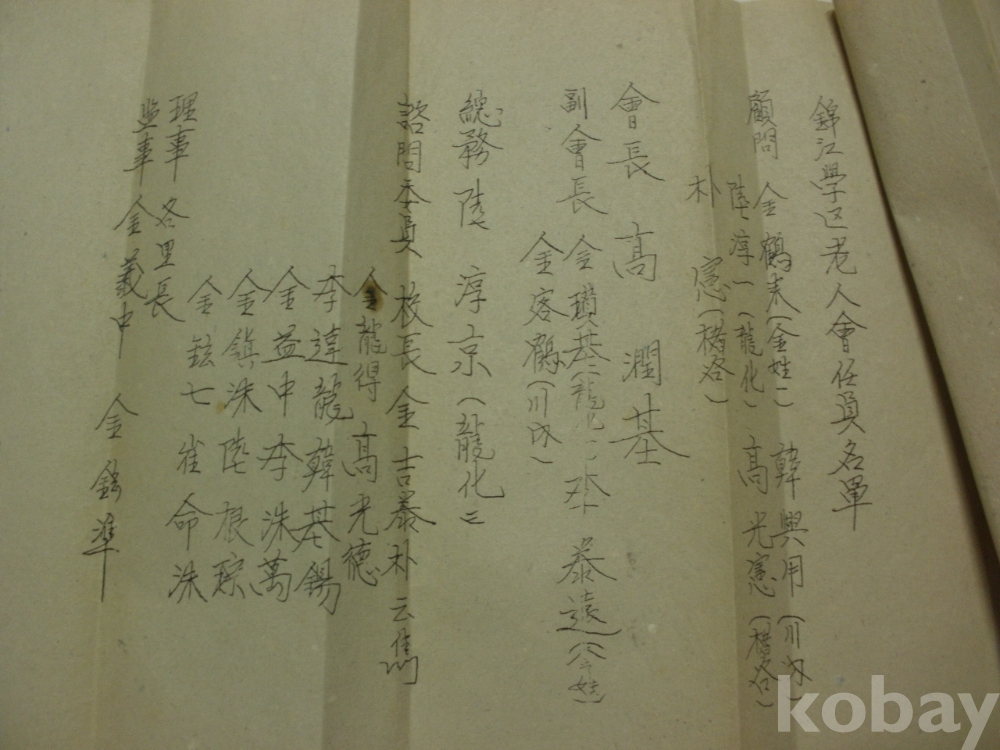 錦江學区老人會任員名單
顧問 金鶴末(金姓) 韓興用(川内)
陸淳一(龍化) 高光憲(楮谷)
朴憲(楮谷)
會長 高潤基
副會長 金瓚基(龍化一) 李泰遠(公姓)
金容鶴(川内)
總務 陸淳京(龍化三)
諮問委員 校長金吉泰 朴云雋
金龍得 高光德
李達龍 韓基錫
金益中 李洙萬
金鎭洙 陸根琮
金鉉七 崔命洙
理事 各里長
監事 金義中 金錦準
kobay